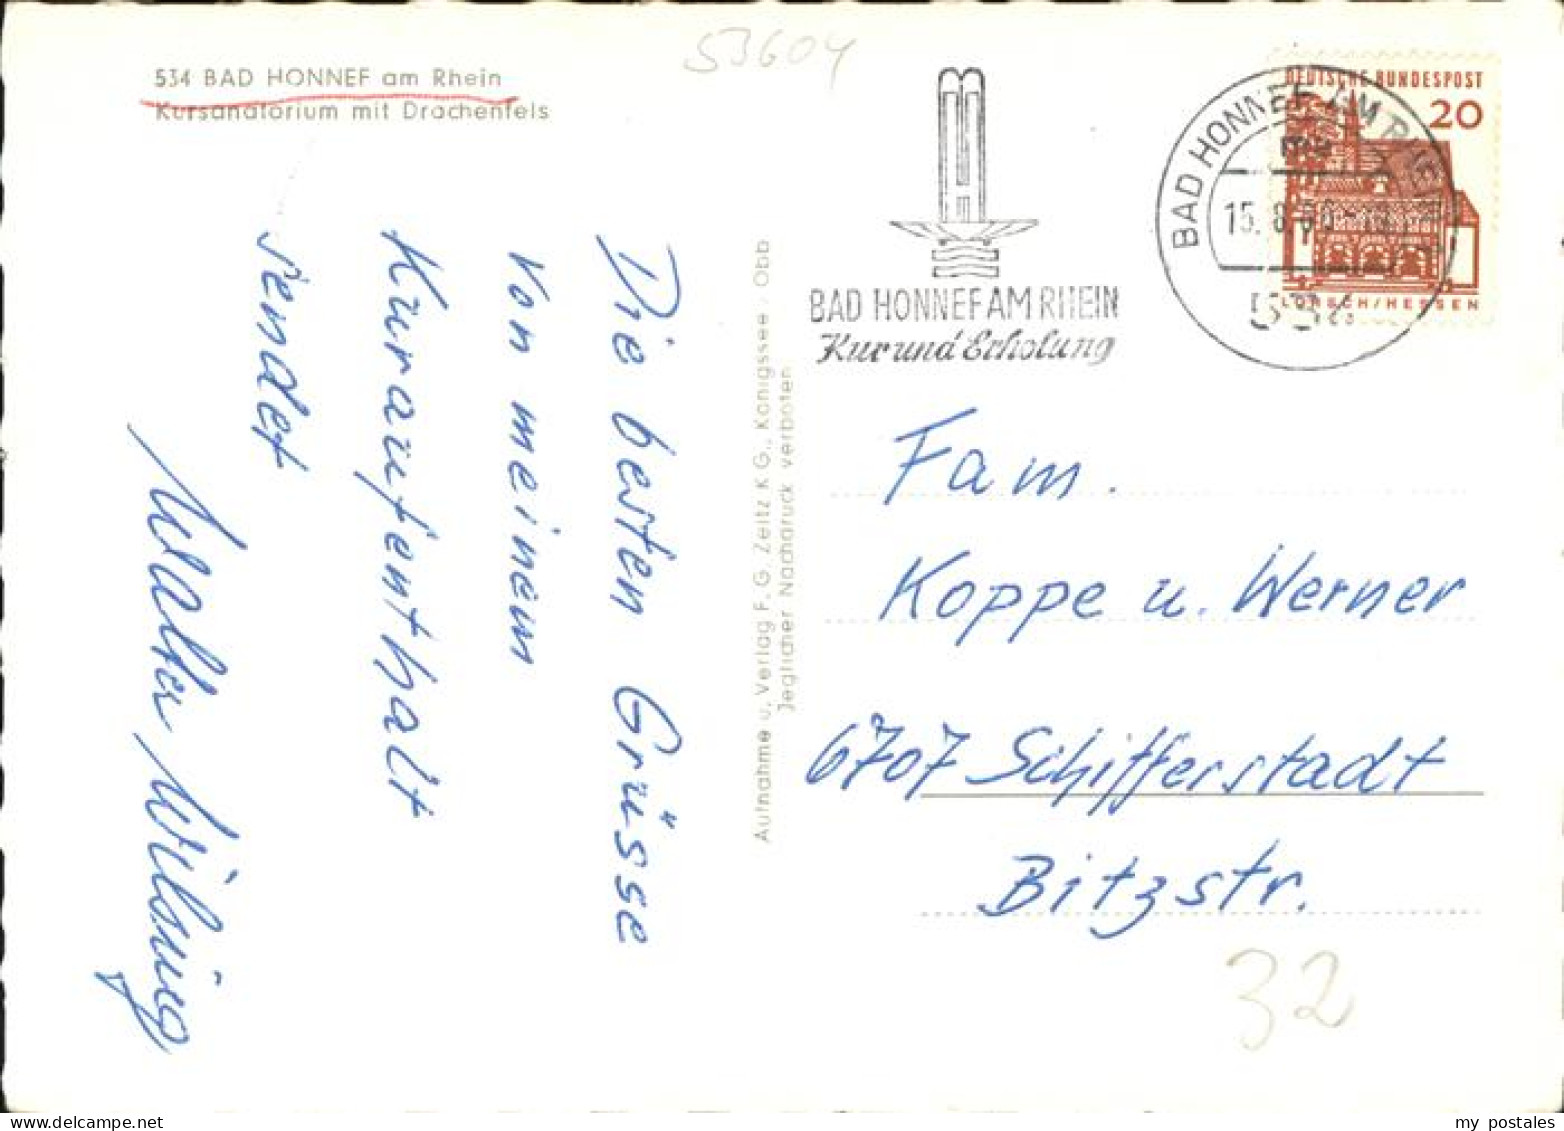 53604
534 BAD HONNEF am Rhein
Kursanatorium mit Drachenfels
Die besten Grüsse
von meinem
Kuraufenthalt
sendet
Walter Wilsing
Aufnahme u. Verlag F. G. Zeitz K G., Königsee / Obb
Jeglicher Nachdruck verboten
BAD HONNEF AM RHEIN
Kur und Erholung
BAD HONNEF AM RHEIN
15. 8.66
534
DEUTSCHE BUNDESPOST
20
LORSCH/HESSEN
Fam.
Koppe u. Werner
6707 Schifferstadt
Bitzstr.
32
my postales